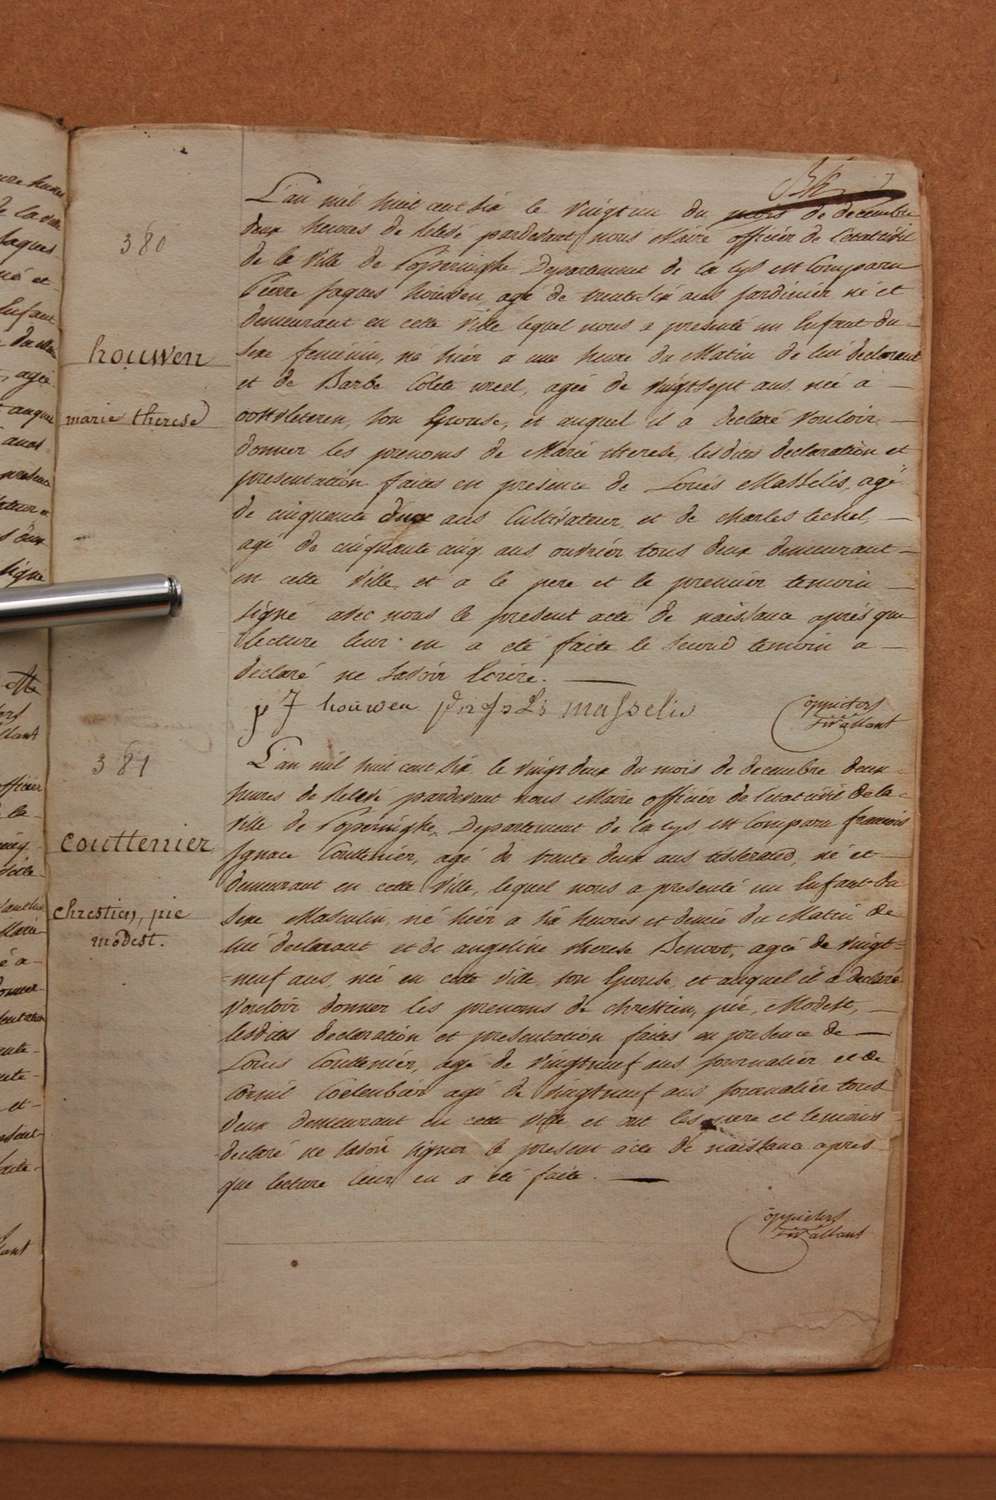 380
houwen
marie therese
L'an mil huit cent six le vingt un du mois de decembre
deux heures de relevé pardevant nous Maire officier de l'etat civil
de la Ville de Poperinghe Departement de la Lys est Comparu
Pierre Jaques houwen, agé de trente six ans Jardinier né et
demeurant en cette Ville lequel nous a presenté un Enfant du
sexe feminin, né hier a une heure du Matin de lui declarant
et de Barbe Colete agée de vingtsept ans née à
oostvleteren, son Epouse, et auquel il a declaré vouloir
donner les prenoms de Marie therese, lesdites declaration et
presentation faites en presence de Louis Masselis, agé
de cinquante deux ans Cultivateur et de charles
agé de cinquante cinq ans ouvrier tous deux demeurant
en cette Ville et a le pere et le premier temoin
signé avec nous le present acte de naissance après que
lecture leur en a eté faite le second temoin a
declaré ne savoir Ecrire.
p J houwen Ls masselis
381
couttenier
chrestien, pie
modest.
L'an mil huit cent six le vingt deux du mois de decembre deux
heures de relevé pardevant nous Maire officier de l'etat civil de la
Ville de Poperinghe, Departement de la Lys est Comparu francois
Ignace Couttenier, agé de trente deux ans tisserand, né et
demeurant en cette Ville, lequel nous a presenté un Enfant du
sexe Masculin, né hier a six heures et demie du Matin de
lui declarant et de angeline therese Benoot, agée de vingt
neuf ans, née en cette Ville son Epouse, et auquel il a declaré
vouloir donner les prenoms de chrestien, pie, Modest,
lesdites declaration et presentation faites en presence de
Louis Couttenier, agé de vingtneuf ans journalier et de
Cornil agé de vingtneuf ans journalier tous
deux demeurant en cette Ville et ont les pere et temoins
declaré ne savoir signer le present acte de naissance apres
que lecture leur en a eté faite.